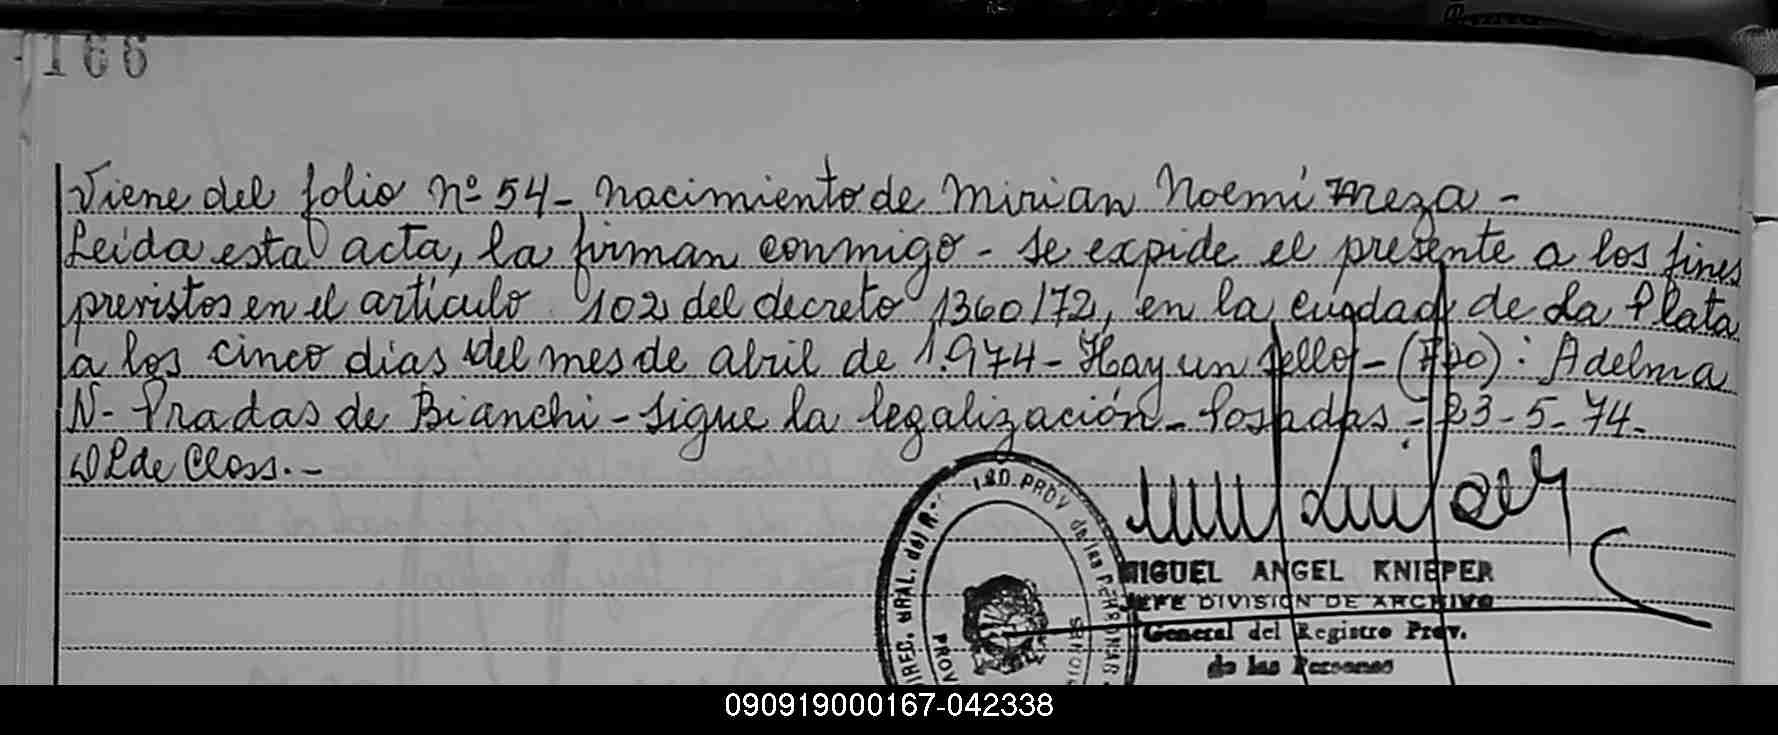 166
Viene del folio Nº 54 - Nacimiento de Mirian Noemí Meza -
Leída esta acta, la firman conmigo - Se expide el presente a los fines
previstos en el artículo 102 del decreto 1360/72, en la ciudad de La Plata
a los cinco dias del mes de abril de 1.974 - Hay un sello - (Fdo): Adelma
N. Pradas de Bianchi - Sigue la legalización - Posadas - 23-5-74 -
de Closs. -
DIREC. GRAL. del R. PROV de las PERSONAS
PROV
MIGUEL ANGEL KNIEPER
JEFE DIVISION DE ARCHIVO
General del Registro Prov.
de las Personas
090919000167-042338